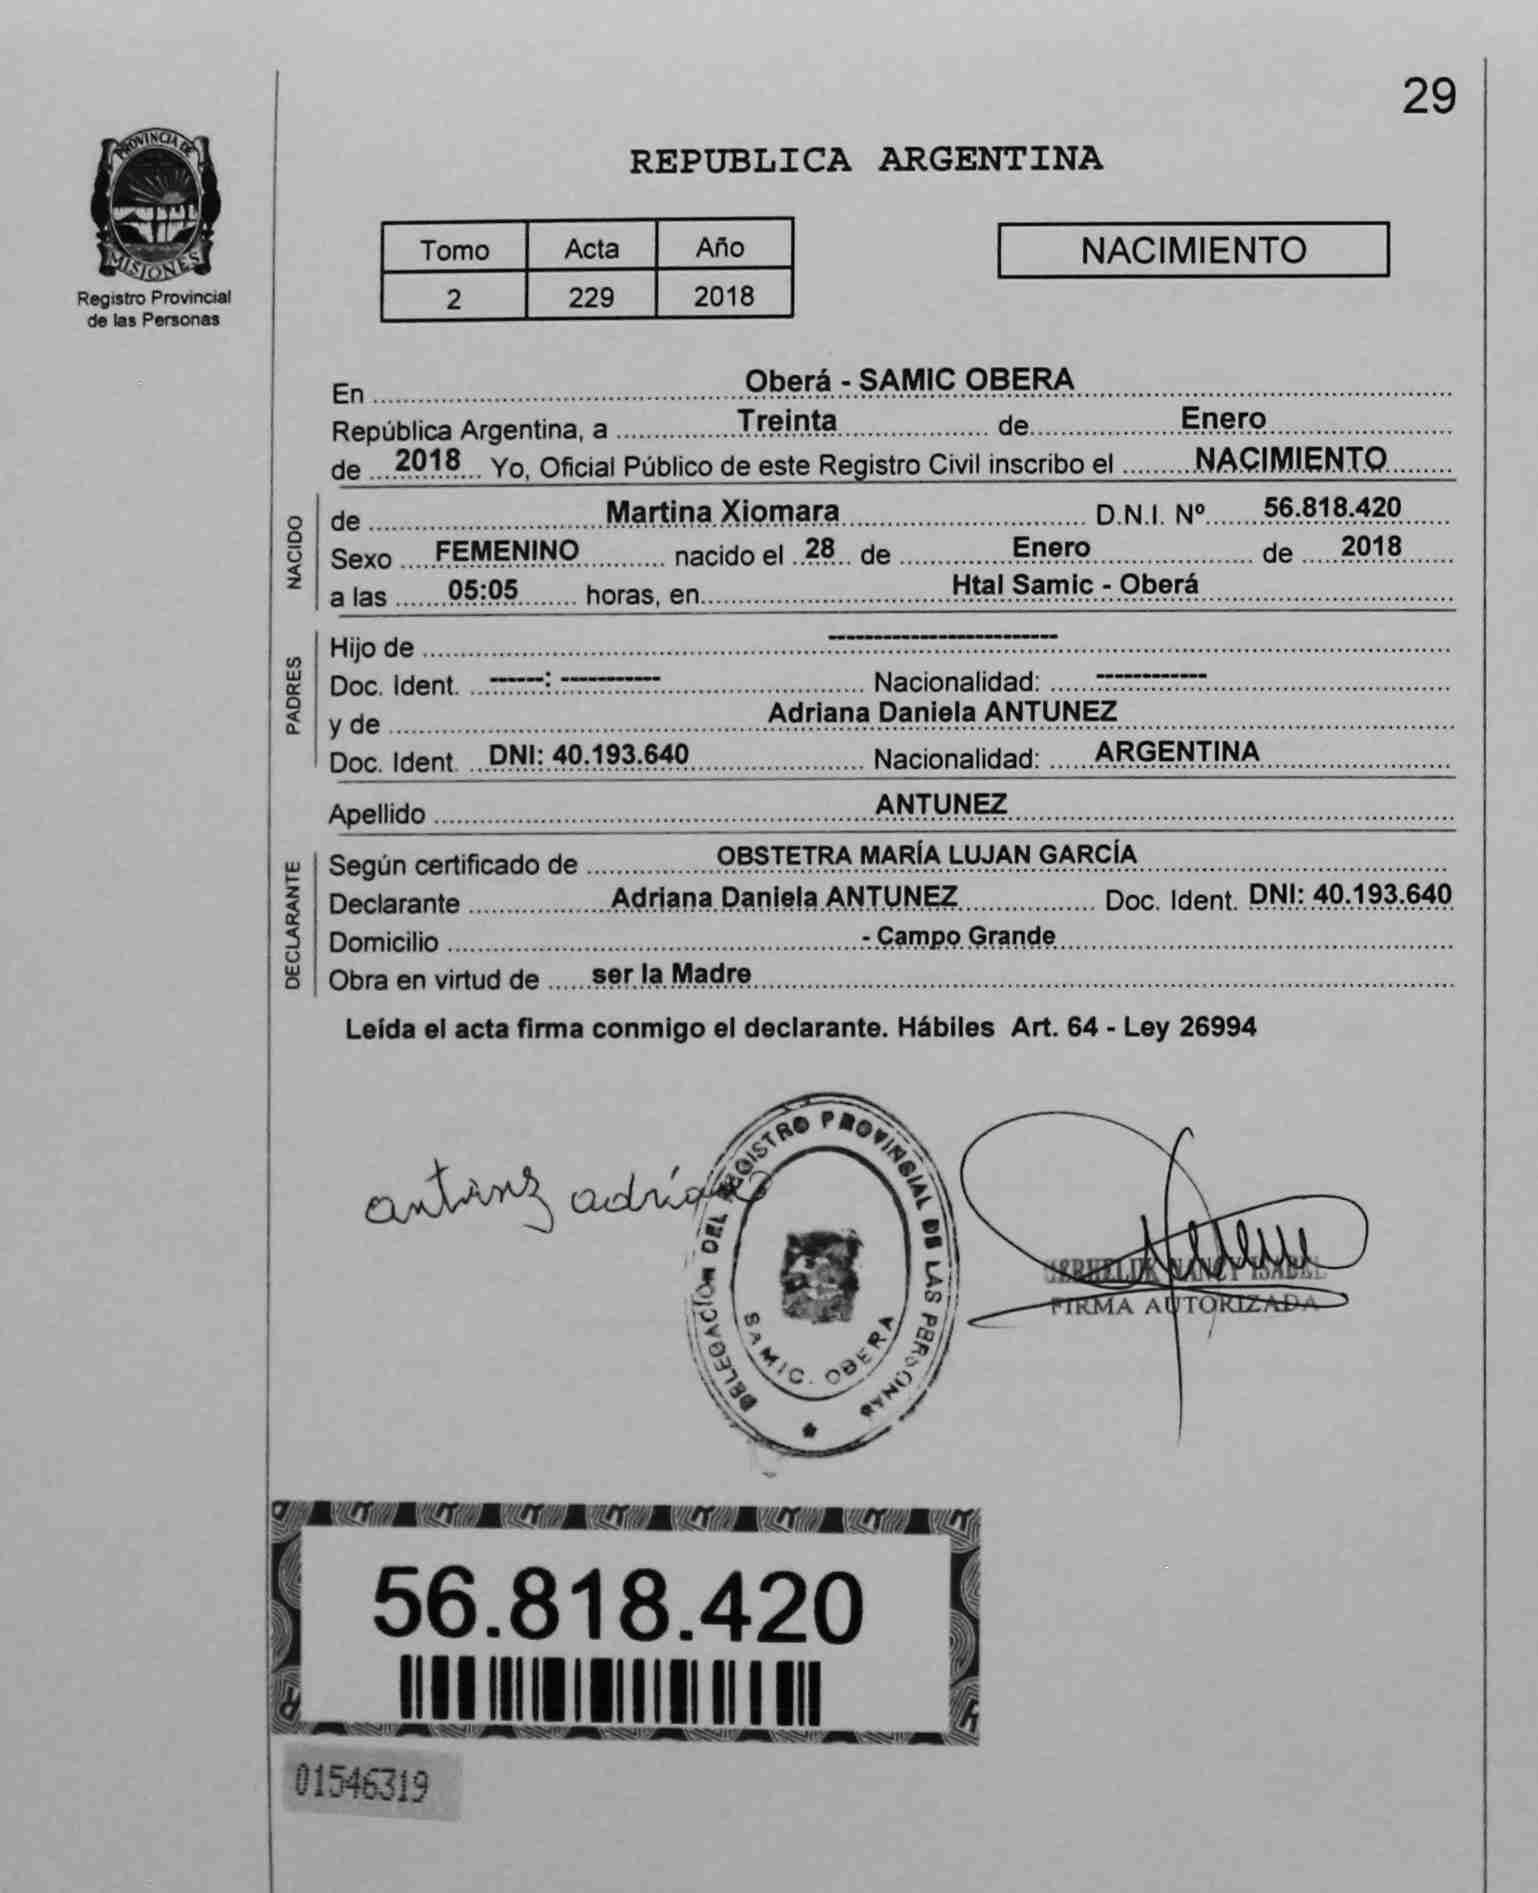 29
PROVINCIA DE
MISIONES
Registro Provincial
de las Personas
REPUBLICA ARGENTINA
Tomo Acta Año
2 229 2018
NACIMIENTO
En Oberá - SAMIC OBERA
República Argentina, a Treinta de Enero
de 2018 Yo, Oficial Público de este Registro Civil inscribo el NACIMIENTO
NACIDO
de Martina Xiomara D.N.I. Nº 56.818.420
Sexo FEMENINO nacido el 28 de Enero de 2018
a las 05:05 horas, en Htal Samic - Oberá
PADRES
Hijo de -------------------------
Doc. Ident. ------: ----------- Nacionalidad: ------------
y de Adriana Daniela ANTUNEZ
Doc. Ident. DNI: 40.193.640 Nacionalidad: ARGENTINA
Apellido ANTUNEZ
DECLARANTE
Según certificado de OBSTETRA MARÍA LUJAN GARCÍA
Declarante Adriana Daniela ANTUNEZ Doc. Ident. DNI: 40.193.640
Domicilio - Campo Grande
Obra en virtud de ser la Madre
Leída el acta firma conmigo el declarante. Hábiles Art. 64 - Ley 26994
antunez adriana
DELEGACION DEL REGISTRO PROVINCIAL DE LAS PERSONAS
SAMIC. OBERA
NANCY ISABEL
FIRMA AUTORIZADA
56.818.420
01546319